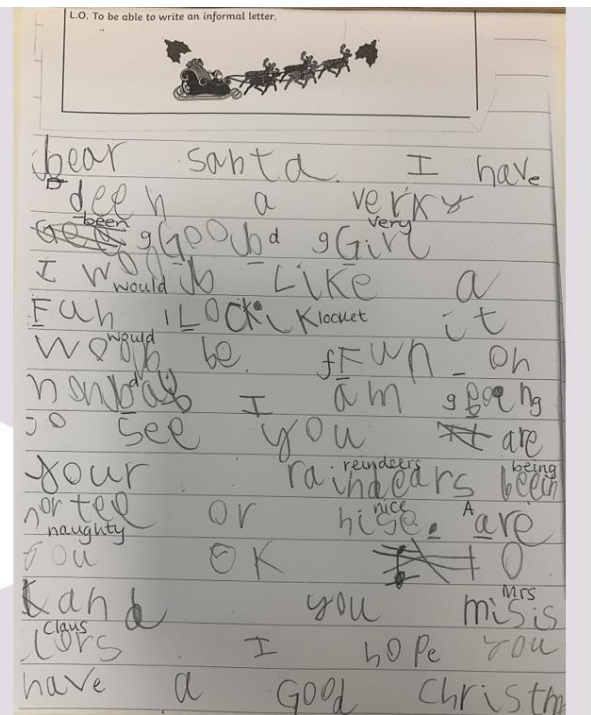 L.O. To be able to write an informal letter.
bear santa. I have
deen a verky
been very
gGooubd gGirl
I woulb Like a
would
Fun lLOCKiK locket it
would
woulb be fFun_ on
nonbday I am gBoeing
go see you are
reindeers being
your raindears been
nice A
nortee or nise. are
naughty
you OK
Mrs
tand you misis
Claus
clors I hope you
have a GOOd Christm